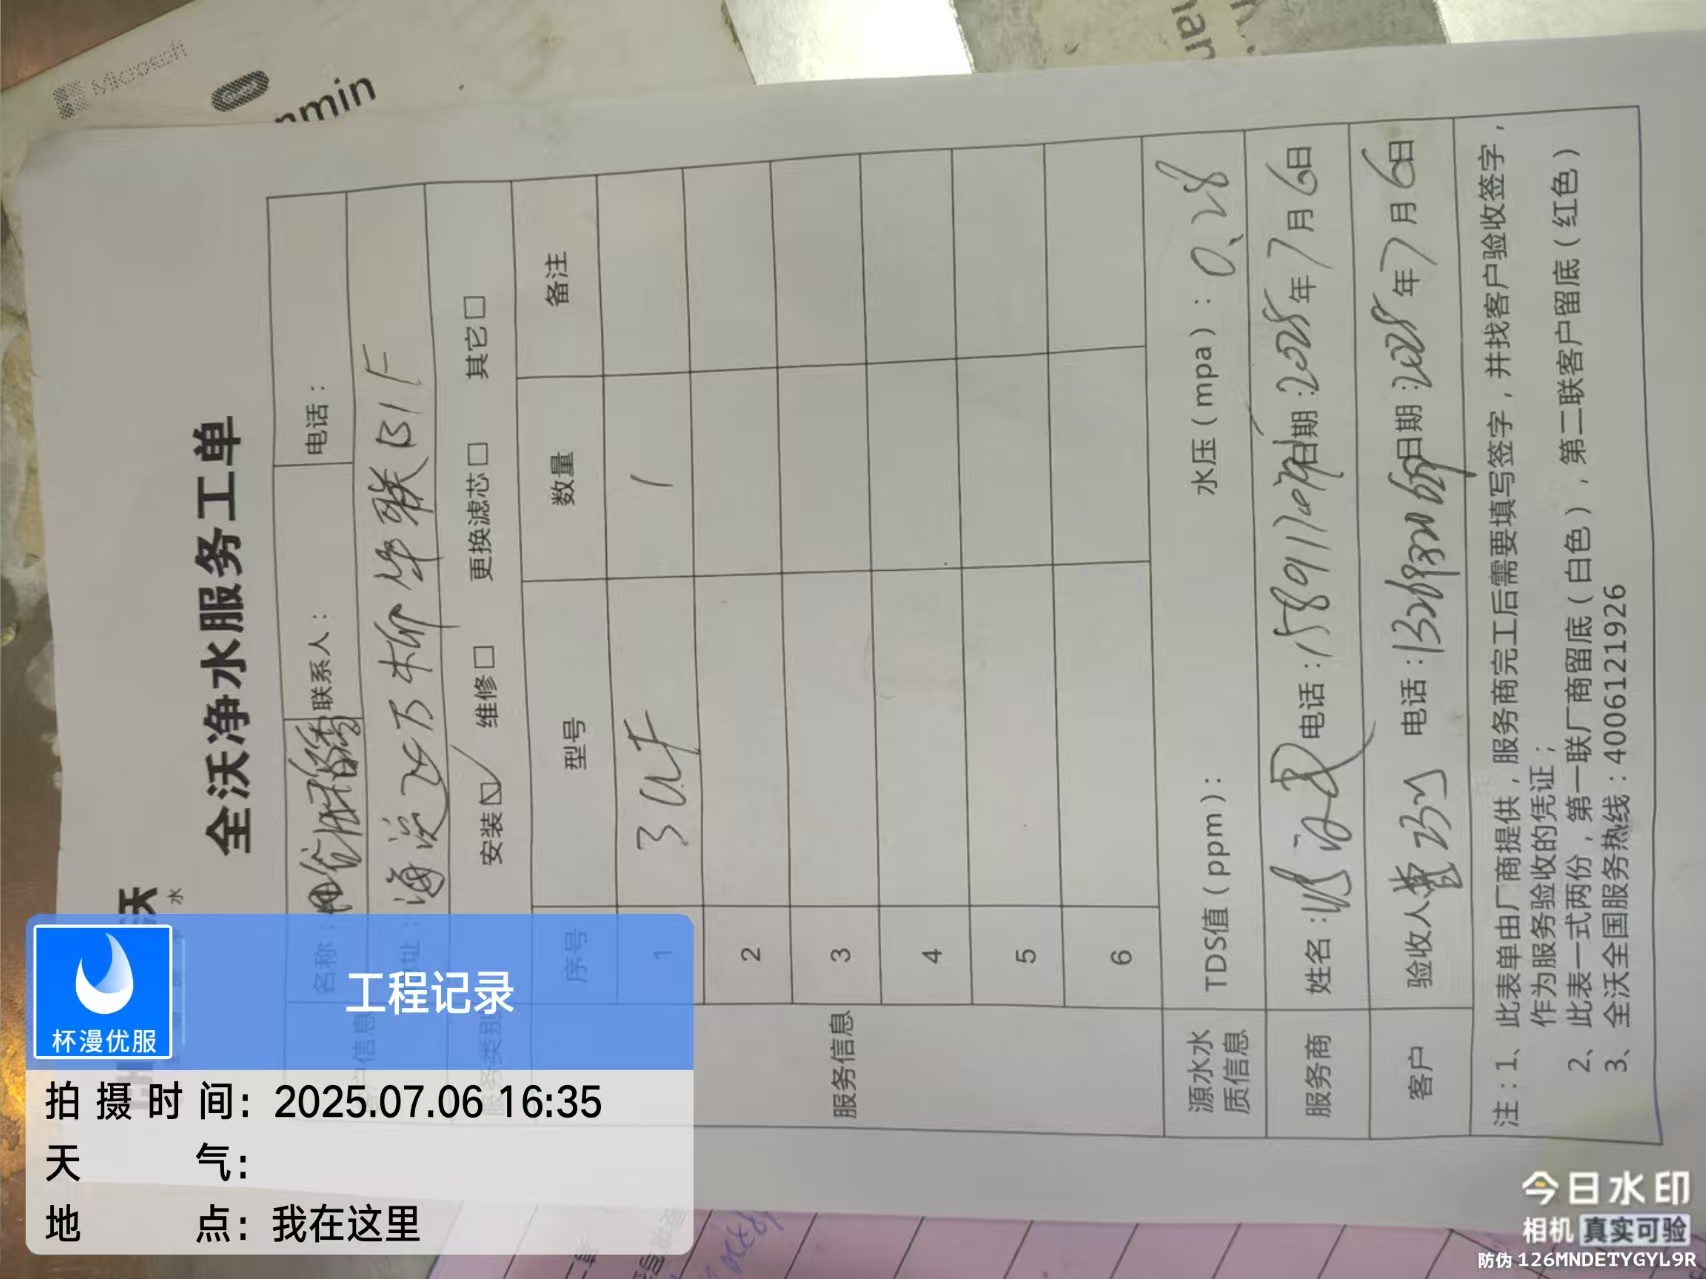 Microsoft
nmin
全沃净水服务工单
名称：
联系人：
电话：
址：海淀区万柳华联B1F
安装☑ 维修□ 更换滤芯□ 其它□
序号 型号 数量 备注
1 3UF 1
2
3
4
5
6
服务信息
源水水质信息 TDS值（ppm）： 水压（mpa）：0.28
服务商 姓名： 电话： 日期：2025年7月6日
客户 验收人 电话： 日期：2025年7月6日
注：1、此表单由厂商提供，服务商完工后需要填写签字，并找客户验收签字，
作为服务验收的凭证；
2、此表一式两份，第一联厂商留底（白色），第二联客户留底（红色）
3、全沃全国服务热线：4006121926
杯漫优服
工程记录
拍摄时间：2025.07.06 16:35
天气：
地点：我在这里
今日水印
相机 真实可验
防伪 126MNDETYGYL9R